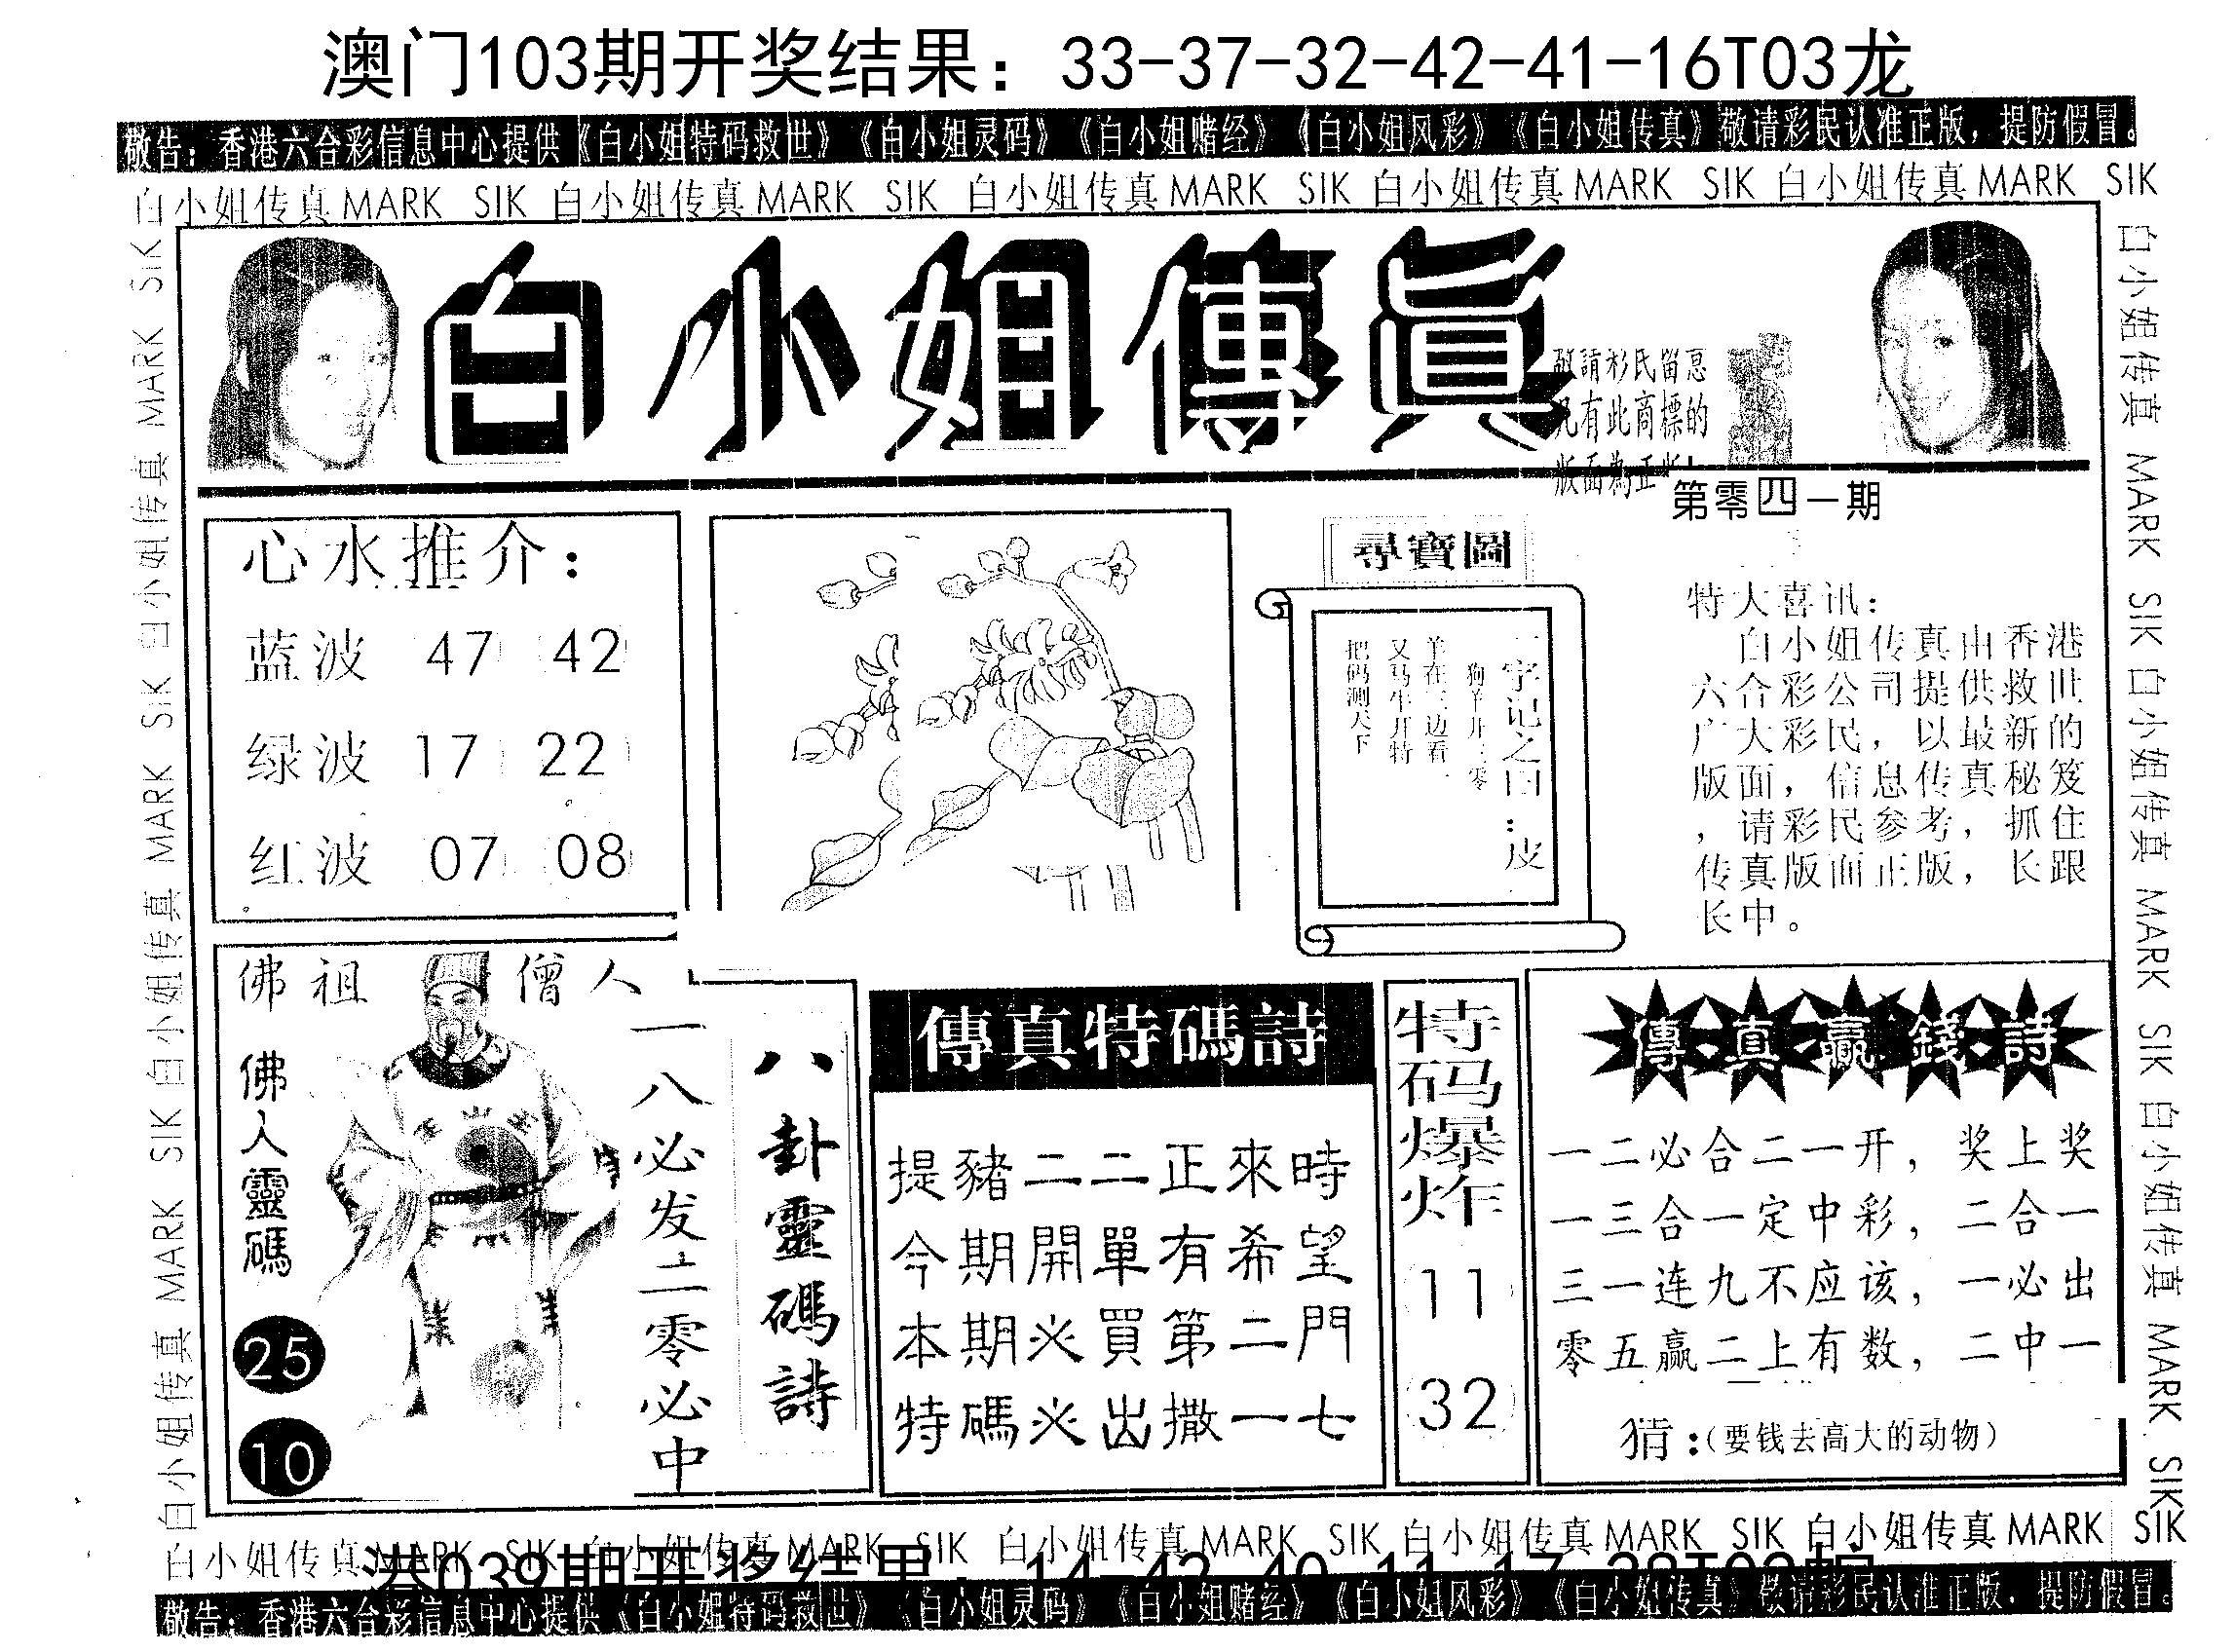 澳门103期开奖结果：33-37-32-42-41-16T03龙
敬告：香港六合彩信息中心提供《白小姐特码救世》《白小姐灵码》《白小姐赌经》《白小姐风彩》《白小姐传真》敬请彩民认准正版，提防假冒。
白小姐传真MARK SIK 白小姐传真MARK SIK 白小姐传真MARK SIK 白小姐传真MARK SIK 白小姐传真MARK SIK
白小姐傳真
敬請彩民留意
凡有此商標的
版面為正版
第零四一期
心水推介：
蓝波 47 42
绿波 17 22
红波 07 08
尋寶圖
一字记之曰：皮
羊在三边看
又马牛开特
把码测天下
特大喜讯：
白小姐传真由香港
六合彩公司提供救世
广大彩民，以最新的
版面，信息传真秘笈
，请彩民参考，抓住
传真版面正版，长跟
长中。
佛祖 僧人
佛人靈碼
25
10
一八必发二零必中
八卦靈碼詩
傳真特碼詩
提豬二二正來時
今期開單有希望
本期必買第二門
特碼必出撒一七
特码爆炸
11
32
傳真贏錢詩
一二必合二一开，奖上奖
一三合一定中彩，二合一
三一连九不应该，一必出
零五赢二上有数，二中一
猜：（要钱去高大的动物）
白小姐传真MARK SIK 白小姐传真MARK SIK 白小姐传真MARK SIK 白小姐传真MARK SIK 白小姐传真MARK SIK
港039期开奖结果：14-42-40-11-17-38T02
敬告：香港六合彩信息中心提供《白小姐特码救世》《白小姐灵码》《白小姐赌经》《白小姐风彩》《白小姐传真》敬请彩民认准正版，提防假冒。
白小姐传真 MARK SIK 白小姐传真 MARK SIK 白小姐传真 MARK SIK 白小姐传真 MARK SIK
白小姐传真 MARK SIK 白小姐传真 MARK SIK 白小姐传真 MARK SIK